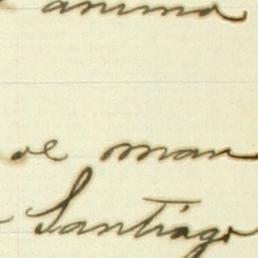 anima
de man
Santiago